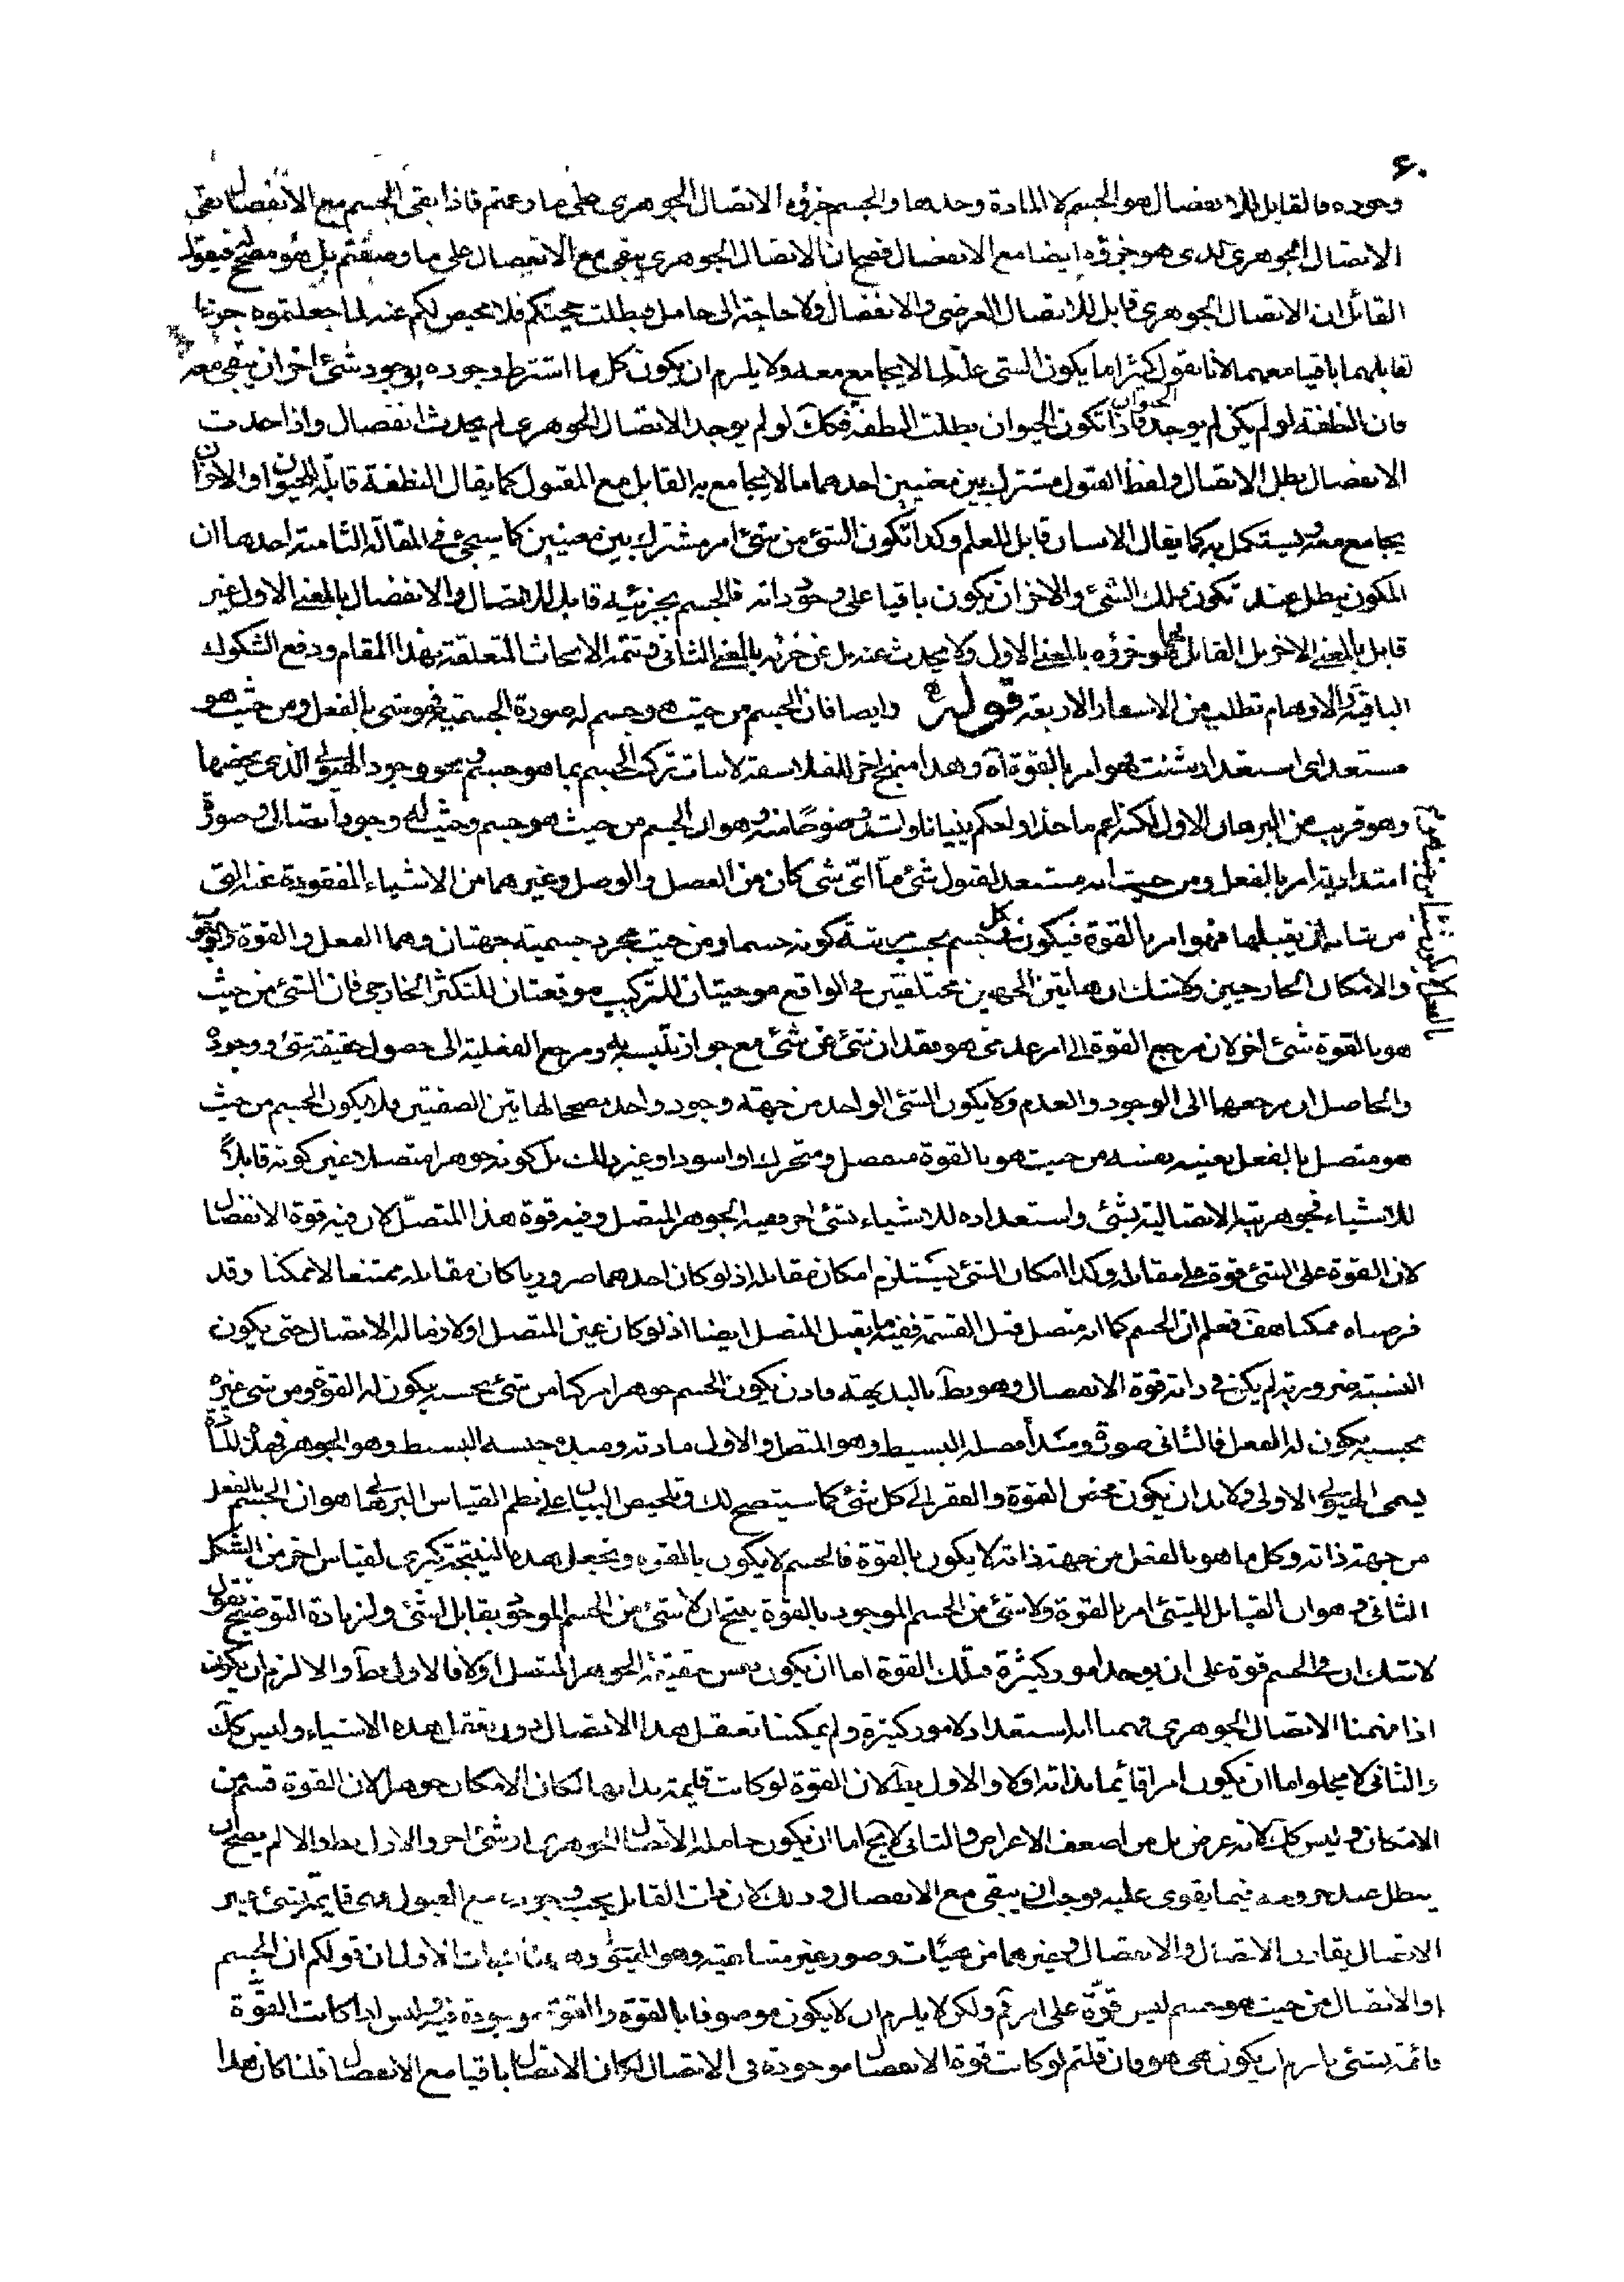 ۶۰
وجوده فالقابل للانفصال هو الجسم لا المادة وحدها والجسم جزؤه الاتصال الجوهرى على ما زعمتم فاذا بقى الجسم مع الانفصال بقى
الاتصال الجوهرى الذى هو جزؤه ايضا مع الانفصال فصح ان الاتصال الجوهرى يبقى مع الانفصال على ما وصفتم بل هو مصحح فيقول
القائل ان الاتصال الجوهرى قابل للاتصال العرضى والانفصال ولا حاجة الى حامل فبطلت حجتكم فلا محيص لكم عنه لما جعلتموه جزءا
لقابلهما باقيا معهما لانا نقول كثيرا ما يكون الشئ علة لما لا يجامع معه ولا يلزم ان يكون كل ما اشترط وجوده بوجود شئ اخر ان يبقى معه
فان النطفة لو لم يكن لم يوجد الحيوان فاذا تكون الحيوان بطلت النطفة فكك لو لم يوجد الاتصال الجوهرى لم يحدث انفصال واذا حدث
الانفصال بطل الاتصال ولفظ القبول مشترك بين معنيين احدهما ما لا يجامع به القابل مع المقبول كما يقال النطفة قابلة للحيوان او الاخر ان
يجامع معه ويستكمل به كما يقال الانسان قابل للعلم وكذا تكون الشئ من شئ امر مشترك بين معنيين كما سيجئ فى المقالة الثامنة احدها ان
المكون يبطل عند تكون ذلك الشئ والاخر ان يكون باقيا على وجود ذاته فالجسم بجزئيه قابل للاتصال والانفصال بالمعنى الاول غير
قابل بالمعنى الاخر بل القابل لهما هو جزؤه بالمعنى الاول ولا يحدث عنه بل عن جزئه بالمعنى الثانى وتتمة الابحاث المتعلقة بهذا المقام ودفع الشكوك
الباقية والاوهام تطلب من الاسفار الاربعة قوله وايضا فان الجسم من حيث هو جسم له صورة الجسمية فهو شى بالفعل ومن حيث هو
مستعد اى استعداد شئت فهو امر بالقوة آه وهذا منهج اخر للفلاسفة لاثبات تركب الجسم بما هو جسم نحو وجود الهيولى الذى يخصها
وهو قريب من البرهان الاول لكنه اعم ماخذا واحكم بنيانا واشد وضوحا منه وهو ان الجسم من حيث هو جسم وحيث له وجود اتصالى وصورة
امتدادية امر بالفعل ومن حيث انه مستعد لقبول شئ ما اىّ شى كان من الفصل والوصل وغيرهما من الاشياء المفقودة عنه التى
من شانه ان يقبلها فهو امر بالقوة فيكون فى كل جسم بحسب مرتبة كونه جسما ومن حيث مجرد جسمية جهتان وهما الفعل والقوة والوجوب
والامكان الخارجيين ولا شك ان هاتين الجهتين مختلفتين فى الواقع موجبتان للتركيب موقعتان للتكثر الخارجى فان الشئ من حيث
هو بالقوة شئ اخر لان مرجع القوة الى امر عدمى هو فقدان شئ عن شئ مع جواز تلبسه به ومرجع الفعلية الى حصول حقيقة شئ ووجوده
والحاصل ان مرجعهما الى الوجود والعدم ولا يكون الشئ الواحد من جهة وجود واحد مصححا لهاتين الصفتين فلا يكون الجسم من حيث
هو متصل بالفعل بعينه نفسه من حيث هو بالقوة منفصل ومتحرك او اسود او غير ذلك بل كونه جوهرا متصلا غير كونه قابلاً
للاشياء فجوهريته الاتصالية بشئ واستعداده للاشياء بشئ اخر ففيه الجوهر المتصل وفيه قوة هذا المتصل لان فيه قوة الانفصال
لان القوة على الشئ قوة على مقابله وكذا امكان الشئ يستلزم امكان مقابله اذ لو كان احدهما ضروريا كان مقابله ممتنعا لا ممكنا وقد
فرضناه ممكنا هف فعلم ان الجسم كما انه متصل قبل القسمة ففيه ما يقبل المتصل ايضا اذ لو كان عين المتصل او لازما له الاتصال حتى يكون
النسبة ضرورية لم يكن فى ذاته قوة الانفصال وهو بط بالبديهة فاذن يكون الجسم جوهرا مركبا من شئ بحسبه يكون له القوة ومن شى غيره
بحسبه يكون له الفعل فالثانى صورة ومبدأ فصله البسيط وهو المتصل والاولى مادته ومبدء جنسه البسيط وهو الجوهر فهذه المادة
يسمى الهيولى الاولى ولا بد ان يكون محض القوة والفقر الى كل شئ كما سيتضح لك وتلخيص البيان على نظم القياس البرهانى هو ان الجسم بالفعل
من جهة ذاته وكل ما هو بالفعل من جهة ذاته لا يكون بالقوة فالجسم لا يكون بالقوه ويجعل هذه النتيجة كبرى لقياس اخر من الشكل
الثانى وهو ان القابل للشئ امر بالقوة ولا شئ من الجسم الموجود بالقوة ينتج ان لا شئ من الجسم الموجود بقابل لشئ ولزيادة التوضيح نقول
لا شك ان فى الجسم قوة على ان يوجد امور كثيرة فتلك القوة اما ان يكون نفس حقيقة الجوهر المتصل او لا فالاول بط والا لزم ان يكون
اذا فهمنا الاتصال الجوهرى فهمنا انه استعداد لامور كثيرة ولم يمكننا تعقل هذا الاتصال دون تعقل هذه الاشياء وليس كك
والثانى لا يخلو اما ان يكون امرا قائما بذاته او لا والاول بط لان القوة لو كانت قائمة بذاتها لكان الامكان جوهرا لان القوة قسم من
الامكان وليس كك لانه عرض بل من اضعف الاعراض والثانى لا يخ اما ان يكون حامله الاتصال الجوهرى او شئ اخر والاول بط والا لم يصح ان
يبطل عند خروجه فيما يقوى عليه فوجب ان يبقى مع الانفصال وذلك لان ذات القابل يجب وجوده مع المقبول فهى قائمة بشئ غير
الاتصال يقارن الاتصال والانفصال وغيرهما من هيئات وصور غير متناهية وهو الهيولى
او الاتصال من حيث هو جسم ليس قوة على امر ثم ولكن لا يلزم ان لا يكون موصوفا بالقوة والقوة موجودة فيه اذ ليس اذا كانت القوة
قائمة بشئ يلزم ان يكون هى هو فان قلتم لو كانت قوة الانفصال موجودة فى الاتصال لكان الاتصال باقيا مع الانفصال قلنا كان هذا